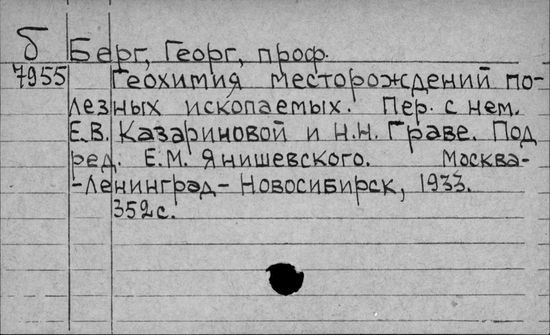 б Берг, Георг, проф.
7955 Геохимия месторождений по-
лезных ископаемых. Пер. с нем.
Е.В. Казариновой и Н.Н. Граве. Под
ред. Е.М. Янишевского. Москва-
-Ленинград-Новосибирск, 1933.
352с.